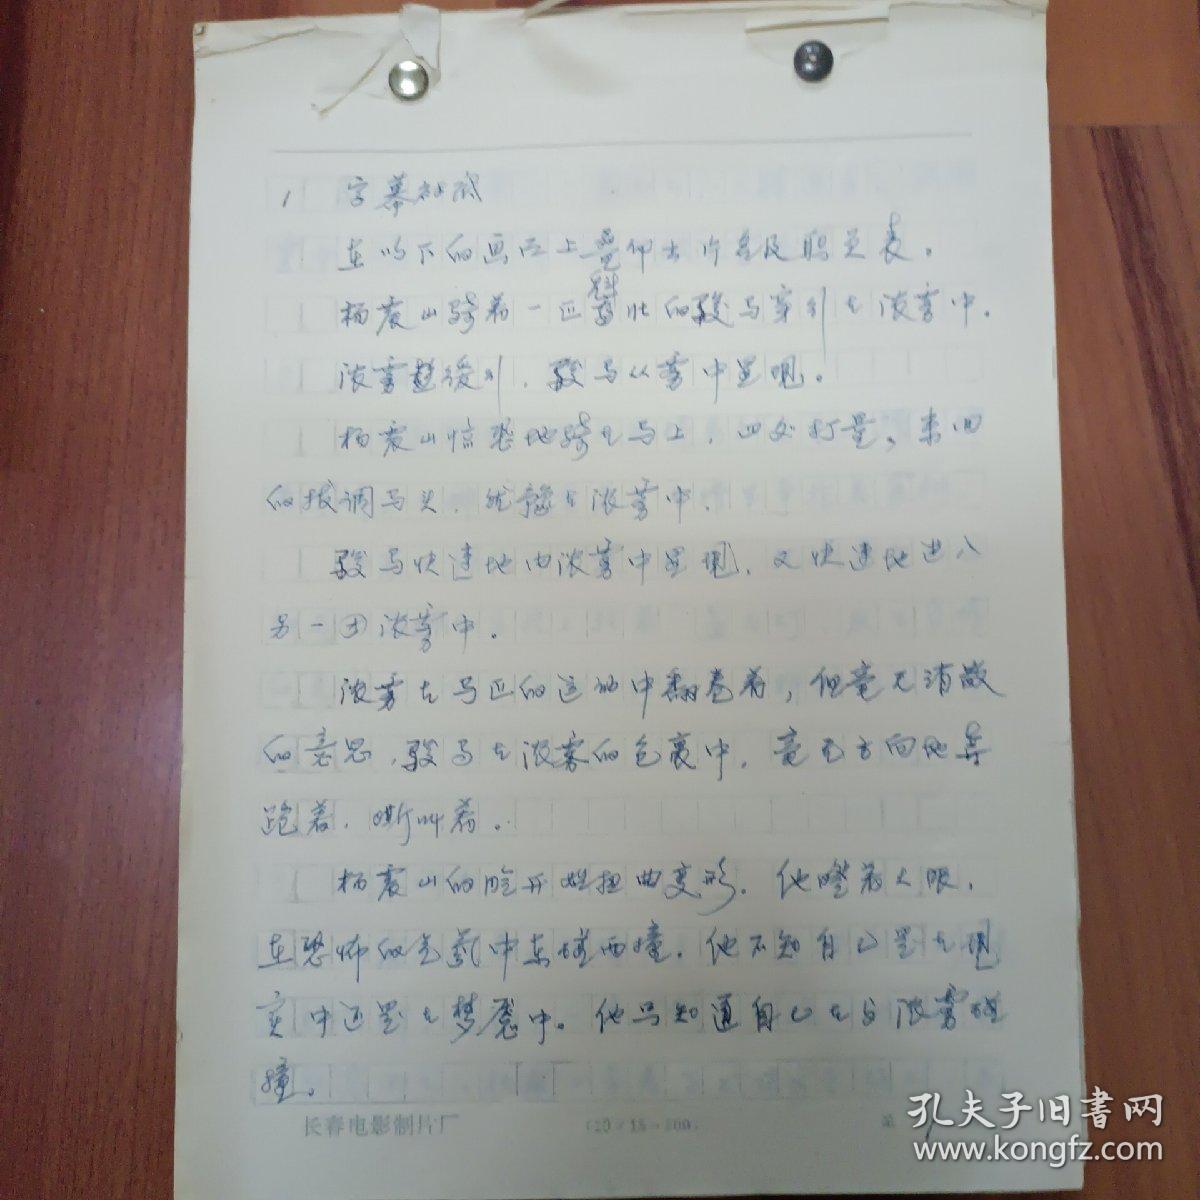 1 字幕衬底
在以下的画面上叠印出片名及职员表。
杨震山骑着一匹健壮的骏马穿行在浓雾中。
浓雾 缓行,骏马从雾中呈现。
杨震山惊恐地骑在马上,四处打量,来回
的拨调马头,犹豫在浓雾中。
骏马快速地由浓雾中呈现,又快速地进入
另一团浓雾中。
浓雾在马匹的运动中翻卷着,但毫无消散
的意思,骏马在浓雾的包裹中,毫无方向地奔
跑着,嘶叫着。
杨震山的脸开始扭曲变形。他瞪着大眼,
在恐怖的氛围中东撞西撞。他不知自己是在现
实中还是在梦魇中。他只知道自己在与浓雾碰
撞。
长春电影制片厂 (20×15=300) 第 1
孔夫子旧书网
www.kongfz.com